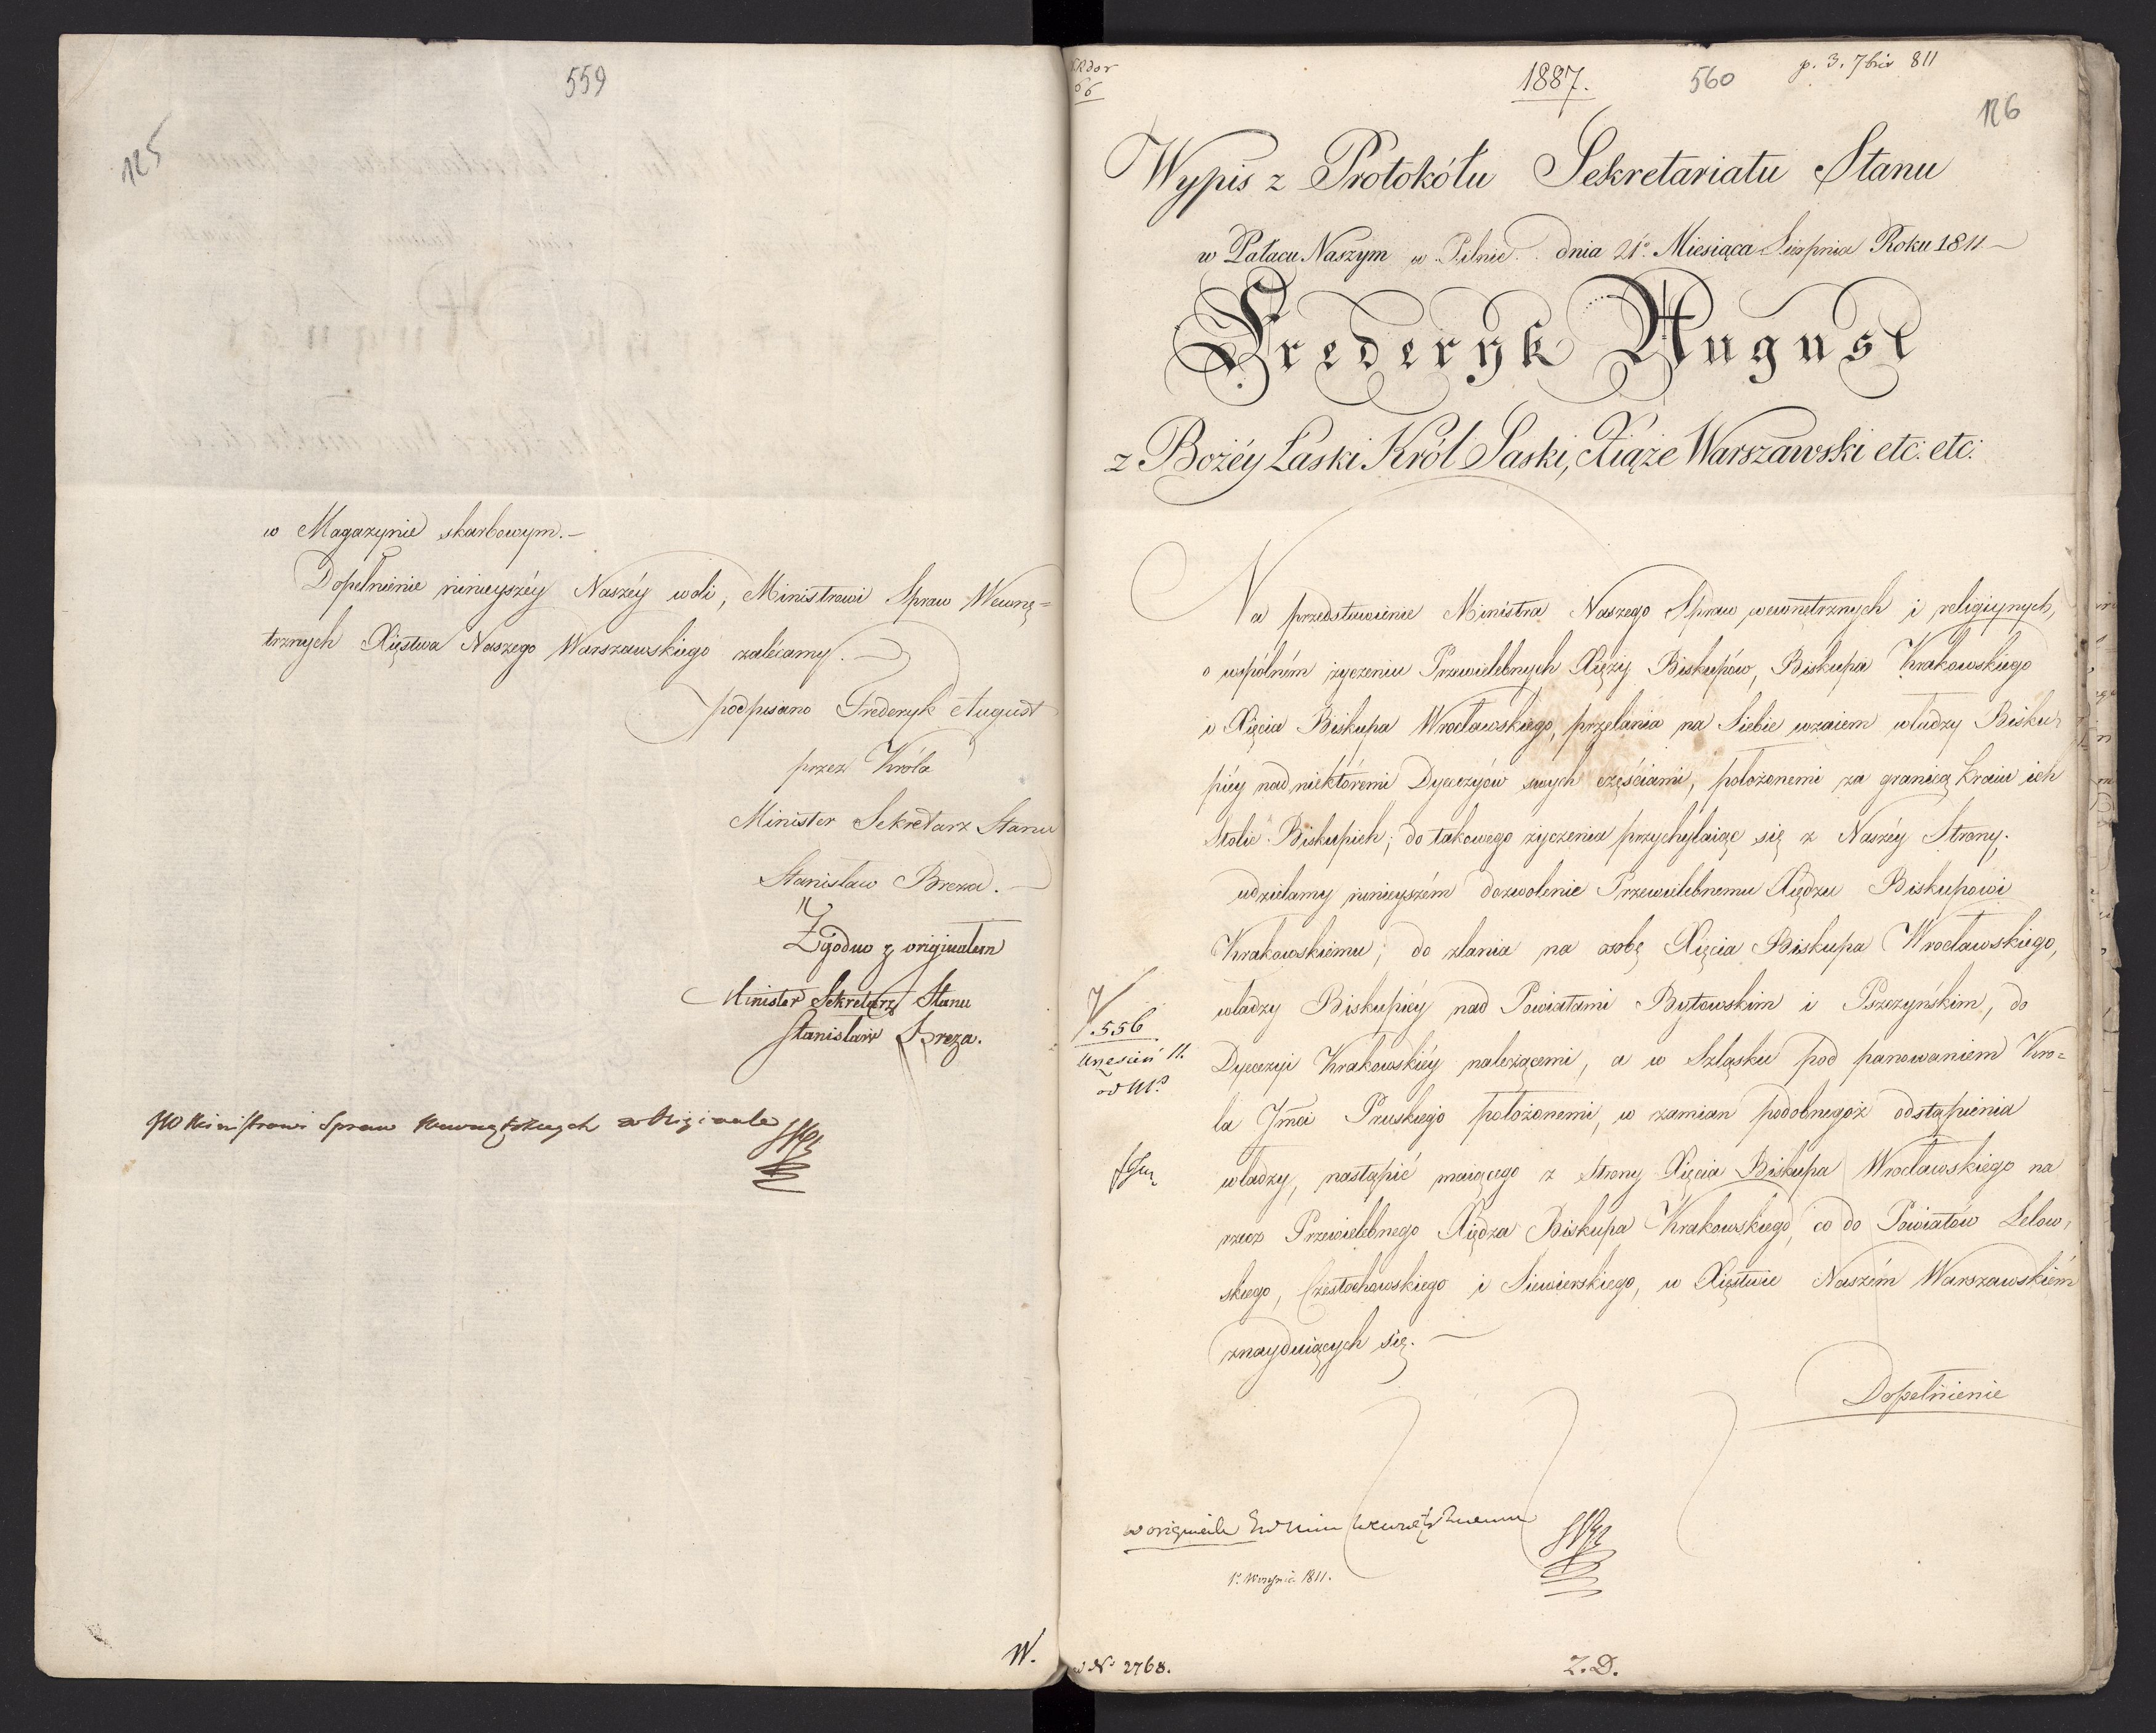 559
125
w Magazynie skarbowym.—
Dopełnienie ninieyszéy Naszéy woli, Ministrowi Spraw Wewnę=
trznych Xięstwa Naszego Warszawskiego zalécamy.—
podpisano Frederyk August
przez Króla
Minister Sekretarz Stanu
Stanisław Breza.—
Zgodno z originałem
Minister Sekretarz Stanu
Stanisław Breza.
Ministrowi Spraw Wewnętrznych w Originale
W.
66
1887.
560
p. 3. 7bris 811
126
Wypis z Protokółu Sekretariatu Stanu
w Pałacu Naszym w Pilnic. dnia 21º Miesiąca Sierpnia Roku 1811—
Frederyk August
z Bożéy Łaski Król Saski, Xiąże Warszawski etc: etc:
Na przedstawienie Ministra Naszego Spraw wewnętrznych i religiynych,
o wspólném życzeniu Przewielebnych Xięży Biskupów, Biskupa Krakowskiego
i Xięcia Biskupa Wrocławskiego, przelania na Siebie wzaiem władzy Bisku=
piéy nad niektóremi Dyecezyów swych częściami, położonemi za granicą kraiu ich
Stolic Biskupich; do takowego życzenia przychylaiąc się z Naszéy Strony.
udzielamy ninieyszém dozwolenie Przewielebnemu Xiędzu Biskupowi
Krakowskiemu; do zlania na osobę Xięcia Biskupa Wrocławskiego,
władzy Biskupiéy nad Powiatami Bytowskim i Pszczyńskim, do
Dyecezyi Krakowskiéy należącemi, a w Szląsku pod panowaniem Kró=
la Jmci Pruskiego położonemi, w zamian podobnegoż odstąpienia
władzy, nastąpić maiącego z Strony Xięcia Biskupa Wrocławskiego na
rzecz Przewielebnego Xiędza Biskupa Krakowskiego, co do Powiatów Lelow=
skiego, Częstochowskiego i Siewierskiego, w Xięstwie Naszém Warszawskiém
znayduiących się.—
556
Dopełnienie
w originale
1º Września 1811.
w Nº 2768.
Z.D.